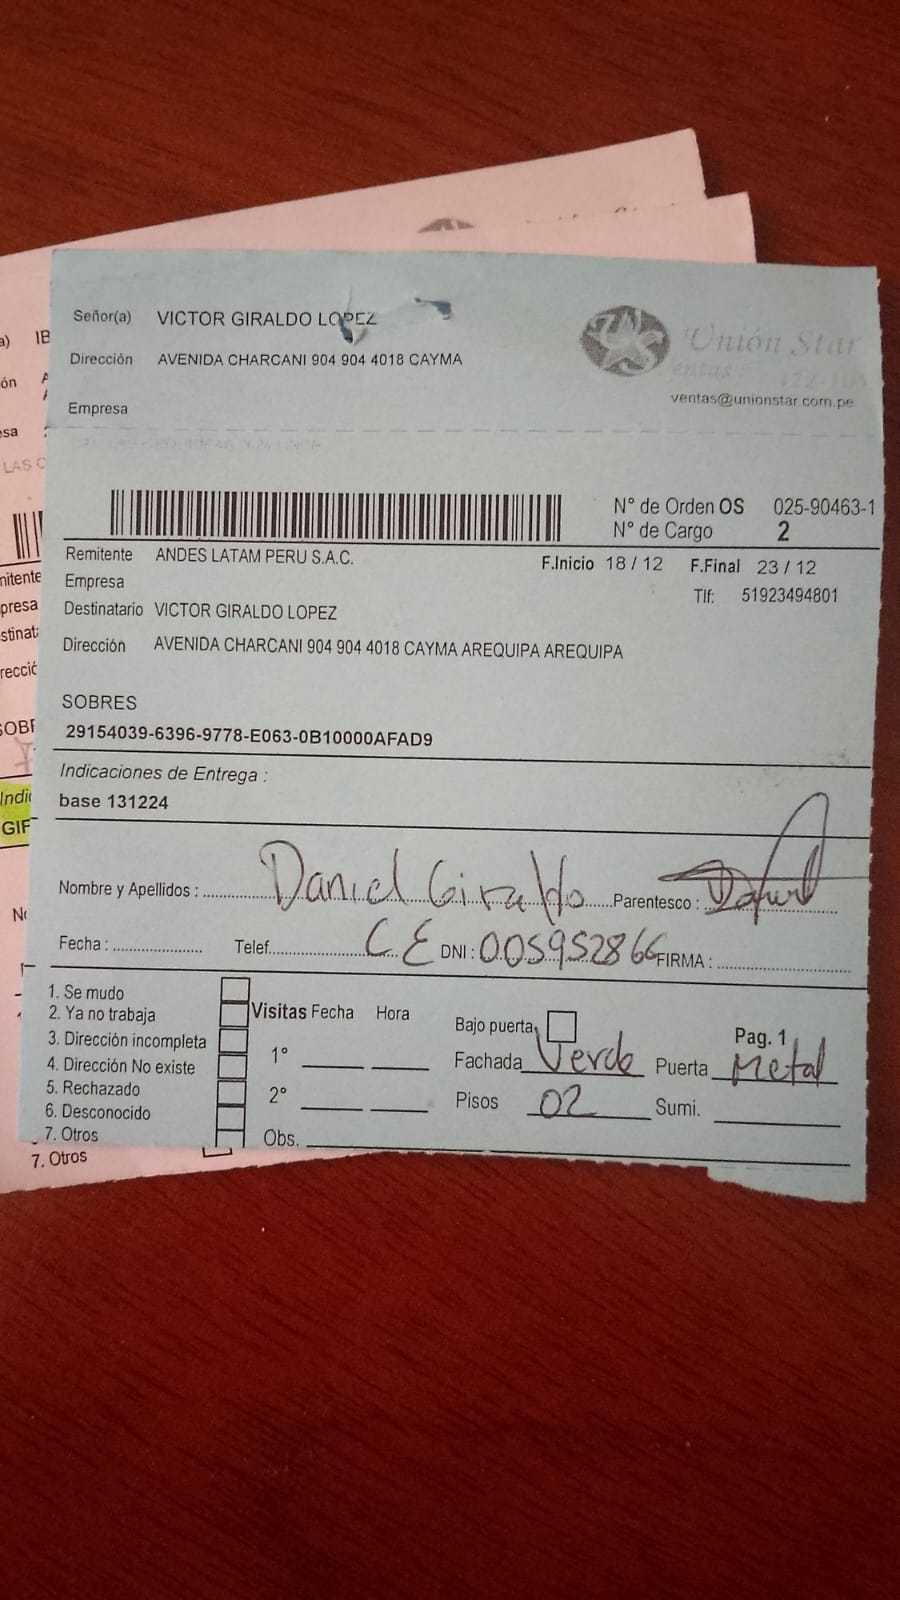 Señor(a) VICTOR GIRALDO LOPEZ
Dirección AVENIDA CHARCANI 904 904 4018 CAYMA
Empresa
Unión Star
ventas@unionstar.com.pe
N° de Orden OS 025-90463-1
N° de Cargo 2
Remitente ANDES LATAM PERU S.A.C.
F.Inicio 18 / 12 F.Final 23 / 12
Empresa
Tlf: 51923494801
Destinatario VICTOR GIRALDO LOPEZ
Dirección AVENIDA CHARCANI 904 904 4018 CAYMA AREQUIPA AREQUIPA
SOBRES
29154039-6396-9778-E063-0B10000AFAD9
Indicaciones de Entrega :
base 131224
Nombre y Apellidos : Daniel Giraldo Parentesco :
Fecha : Telef. CE DNI : 005952866 FIRMA :
1. Se mudo
2. Ya no trabaja
3. Dirección incompleta
4. Dirección No existe
5. Rechazado
6. Desconocido
7. Otros
Visitas Fecha Hora
1°
2°
Obs.
Bajo puerta Pag. 1
Fachada Verde Puerta Metal
Pisos 02 Sumi.
7. Otros